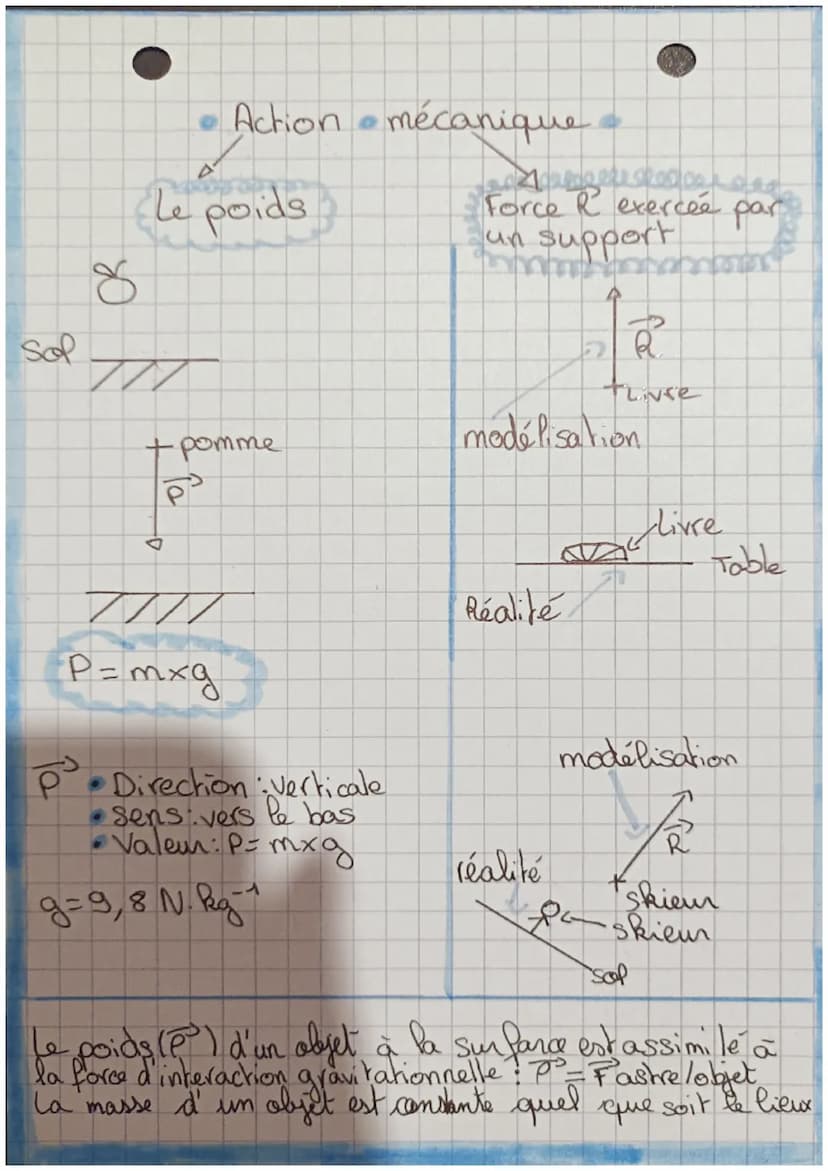 • Action • mécanique •
Le poids
Sol
pomme
P⃗
P = m×g
P⃗ • Direction : verticale
• sens : vers le bas
• Valeur : P = m×g
g = 9,8 N.kg⁻¹
Force R⃗ exercée par
un support
R⃗
Livre
modélisation
Livre
Table
Réalité
modélisation
R⃗
réalité
skieur
skieur
sol
Le poids (P⃗) d'un objet à la surface est assimilé à
la force d'interaction gravitationnelle : P⃗ = F⃗ astre/objet
La masse d'un objet est constante quel que soit le lieux